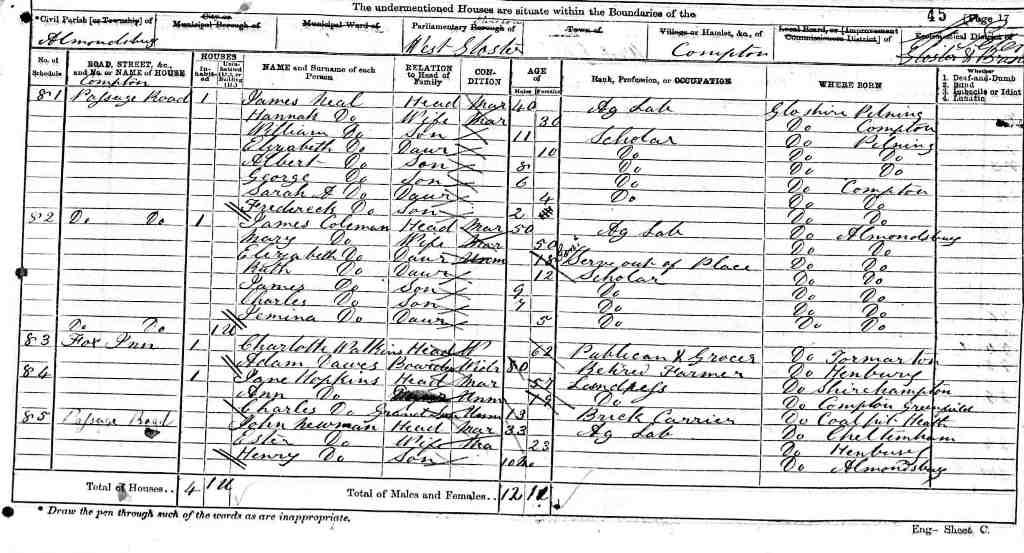 The undermentioned Houses are situate within the Boundaries of the
45 Page 17
*Civil Parish [or Township] of City or Municipal Borough of Municipal Ward of Parliamentary Borough of Town of Village or Hamlet, &c., of Local Board, or [Improvement Commissioners District] of Ecclesiastical District of
Almondsbury West Gloster Compton Gloster &
No. of Schedule ROAD, STREET, &c., and No. or NAME of HOUSE HOUSES Inhabited Uninhabited (U.), or Building (B.) NAME and Surname of each Person RELATION to Head of Family CONDITION AGE of Males Females Rank, Profession, or OCCUPATION WHERE BORN Whether 1. Deaf-and-Dumb 2. Blind 3. Imbecile or Idiot 4. Lunatic
Compton
81 Passage Road 1 James Neal Head Mar 40 Ag Lab Gloshire Pilning
Hannah Do Wife Mar 30 Do Compton
William Do Son 11 Scholar Do Pilning
Elizabeth Do Daur 10 Do Do Do
Albert Do Son 8 Do Do Do
George Do Son 6 Do Do Compton
Sarah A Do Daur 4 Do Do Do
Frederick Do Son 2 Do Do
82 Do Do 1 James Coleman Head Mar 50 Ag Lab Do Almondsbury
Mary Do Wife Mar 50 Do Do
Elizabeth Do Daur Unm 18 Serv out of Place Do Do
Ruth Do Daur 12 Scholar Do Do
James Do Son 9 Do Do Do
Charles Do Son 7 Do Do Do
Jemina Do Daur 5 Do Do Do
Do Do 1U
83 Fox Inn 1 Charlotte Watkins Head W 62 Publican & Grocer Do Tormarton
Adam Dawes Boarder Wid 80 Retired Farmer Do Henbury
84 1 Jane Hopkins Head Mar 57 Landress Do Shirehampton
Ann Do Unm 19 Do Do Compton Greenfield
Charles Do Grandson Unm 13 Brick Carrier Do Coalpit Heath
85 Passage Road John Newman Head Mar 33 Ag Lab Do Cheltenham
Ester Do Wife Mar 23 Do Henbury
Henry Do Son 10 Mo Do Almondsbury
Total of Houses.. 4 1U Total of Males and Females.. 12 11
* Draw the pen through such of the words as are inappropriate.
Eng- Sheet C.